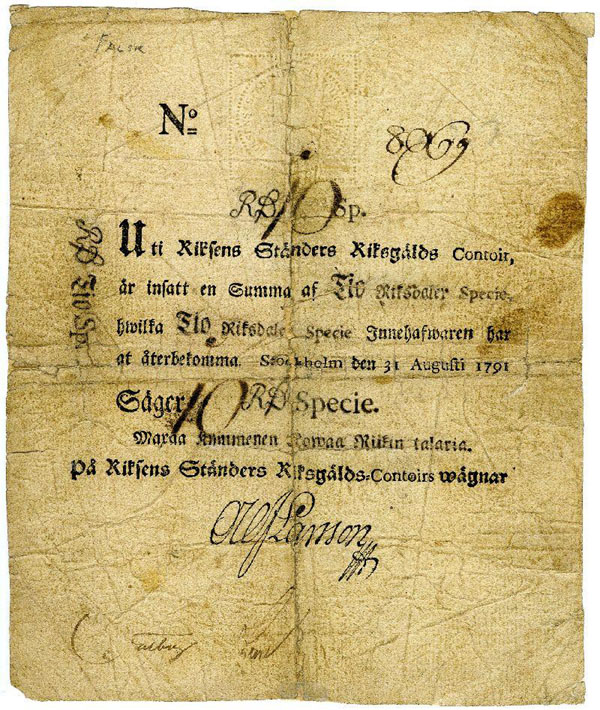 FALSK
No
RD 10 Sp.
Uti Riksens Ständers Riksgälds Contoir,
är insatt en Summa af Tio Riksdaler Specie,
hwilka Tio Riksdaler Specie Innehafwaren har
at återbekomma. Stockholm den 31 Augusti 1791
Säger 10 RD Specie.
Maxaa Kymmenen Kowaa Riikin talaria.
På Riksens Ständers Riksgälds-Contoirs wägnar
RD Tio Sp.